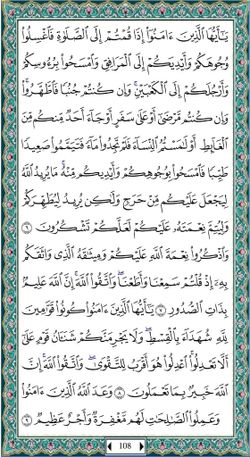 يَٰٓأَيُّهَا ٱلَّذِينَ ءَامَنُوٓا۟ إِذَا قُمْتُمْ إِلَى ٱلصَّلَوٰةِ فَٱغْسِلُوا۟
وُجُوهَكُمْ وَأَيْدِيَكُمْ إِلَى ٱلْمَرَافِقِ وَٱمْسَحُوا۟ بِرُءُوسِكُمْ
وَأَرْجُلَكُمْ إِلَى ٱلْكَعْبَيْنِ ۚ وَإِن كُنتُمْ جُنُبًا فَٱطَّهَّرُوا۟ ۚ
وَإِن كُنتُم مَّرْضَىٰٓ أَوْ عَلَىٰ سَفَرٍ أَوْ جَآءَ أَحَدٌ مِّنكُم مِّنَ
ٱلْغَآئِطِ أَوْ لَٰمَسْتُمُ ٱلنِّسَآءَ فَلَمْ تَجِدُوا۟ مَآءً فَتَيَمَّمُوا۟ صَعِيدًا
طَيِّبًا فَٱمْسَحُوا۟ بِوُجُوهِكُمْ وَأَيْدِيكُم مِّنْهُ ۚ مَا يُرِيدُ ٱللَّهُ
لِيَجْعَلَ عَلَيْكُم مِّنْ حَرَجٍ وَلَٰكِن يُرِيدُ لِيُطَهِّرَكُمْ
وَلِيُتِمَّ نِعْمَتَهُۥ عَلَيْكُمْ لَعَلَّكُمْ تَشْكُرُونَ ٦
وَٱذْكُرُوا۟ نِعْمَةَ ٱللَّهِ عَلَيْكُمْ وَمِيثَٰقَهُ ٱلَّذِى وَاثَقَكُم
بِهِۦٓ إِذْ قُلْتُمْ سَمِعْنَا وَأَطَعْنَا ۖ وَٱتَّقُوا۟ ٱللَّهَ ۚ إِنَّ ٱللَّهَ عَلِيمٌۢ
بِذَاتِ ٱلصُّدُورِ ٧ يَٰٓأَيُّهَا ٱلَّذِينَ ءَامَنُوا۟ كُونُوا۟ قَوَّٰمِينَ
لِلَّهِ شُهَدَآءَ بِٱلْقِسْطِ ۖ وَلَا يَجْرِمَنَّكُمْ شَنَـَٔانُ قَوْمٍ عَلَىٰٓ
أَلَّا تَعْدِلُوا۟ ۚ ٱعْدِلُوا۟ هُوَ أَقْرَبُ لِلتَّقْوَىٰ ۖ وَٱتَّقُوا۟ ٱللَّهَ ۚ إِنَّ
ٱللَّهَ خَبِيرٌۢ بِمَا تَعْمَلُونَ ٨ وَعَدَ ٱللَّهُ ٱلَّذِينَ ءَامَنُوا۟
وَعَمِلُوا۟ ٱلصَّٰلِحَٰتِ ۙ لَهُم مَّغْفِرَةٌ وَأَجْرٌ عَظِيمٌ ٩
108